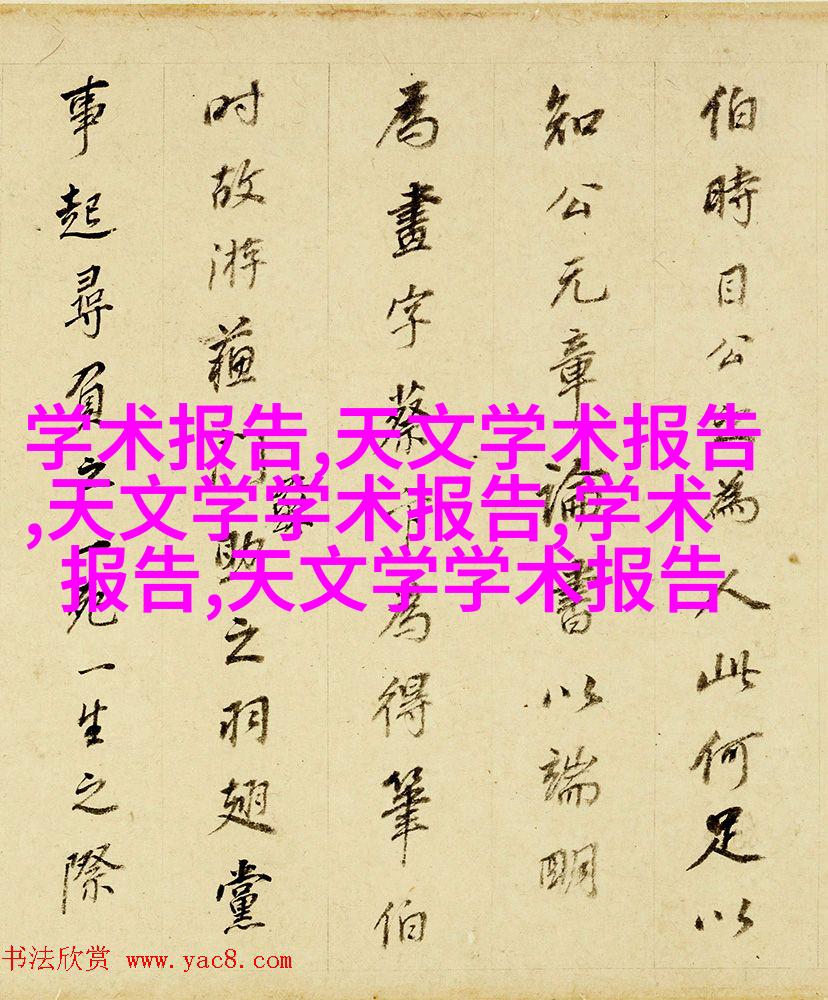 伯時目公之為人此何足以
知公元章論書以端明
為畫字蔡為得筆伯
时故游蘓門助之羽翅黨
事起尋負之一生之際
学术报告,天文学术报告
,天文学学术报告,学术
报告,天文学学术报告
书法欣赏 www.yac8.com